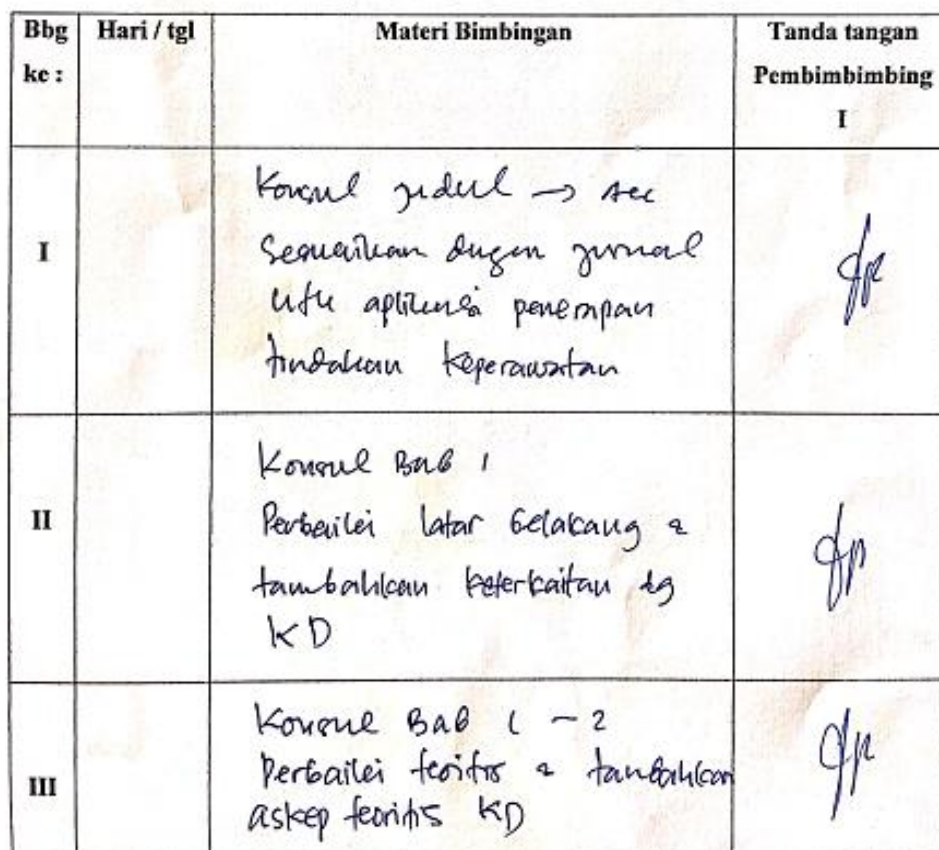 Bbg ke : Hari / tgl Materi Bimbingan Tanda tangan Pembimbimbing I
I
Konsul judul → acc
Sesuaikan dengan jurnal
utk aplikasi penerapan
tindakan keperawatan
II
Konsul Bab 1
Perbaiki latar belakang &
tambahkan keterkaitan dg
KD
III
Konsul Bab 1 - 2
Perbaiki teoritis & tambahkan
askep teoritis KD